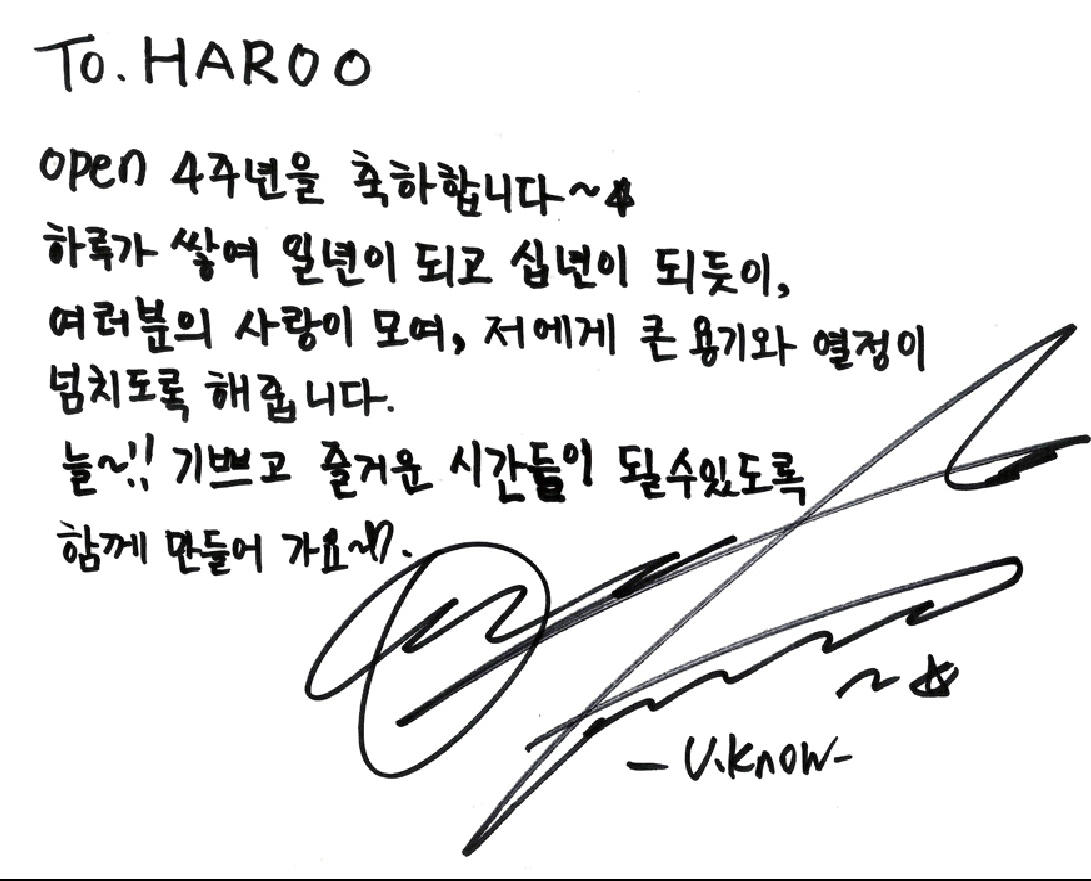 To. HAROO
open 4주년을 축하합니다~☆
하루가 쌓여 일년이 되고 십년이 되듯이,
여러분의 사랑이 모여, 저에게 큰 용기와 열정이
넘치도록 해줍니다.
늘~!! 기쁘고 즐거운 시간들이 될수있도록
함께 만들어 가요~♡.
~☆
- U.Know -